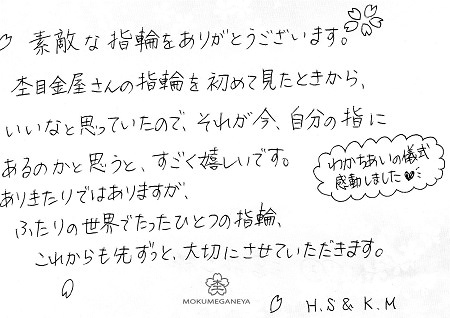 素敵な指輪をありがとうございます。
杢目金屋さんの指輪を初めて見たときから、
いいなと思っていたので、それが今、自分の指に
あるのかと思うと、すごく嬉しいです。
わかちあいの儀式
感動しました
ありきたりではありますが、
ふたりの世界でたったひとつの指輪、
これからも先ずっと、大切にさせていただきます。
MOKUMEGANEYA
H.S & K.M